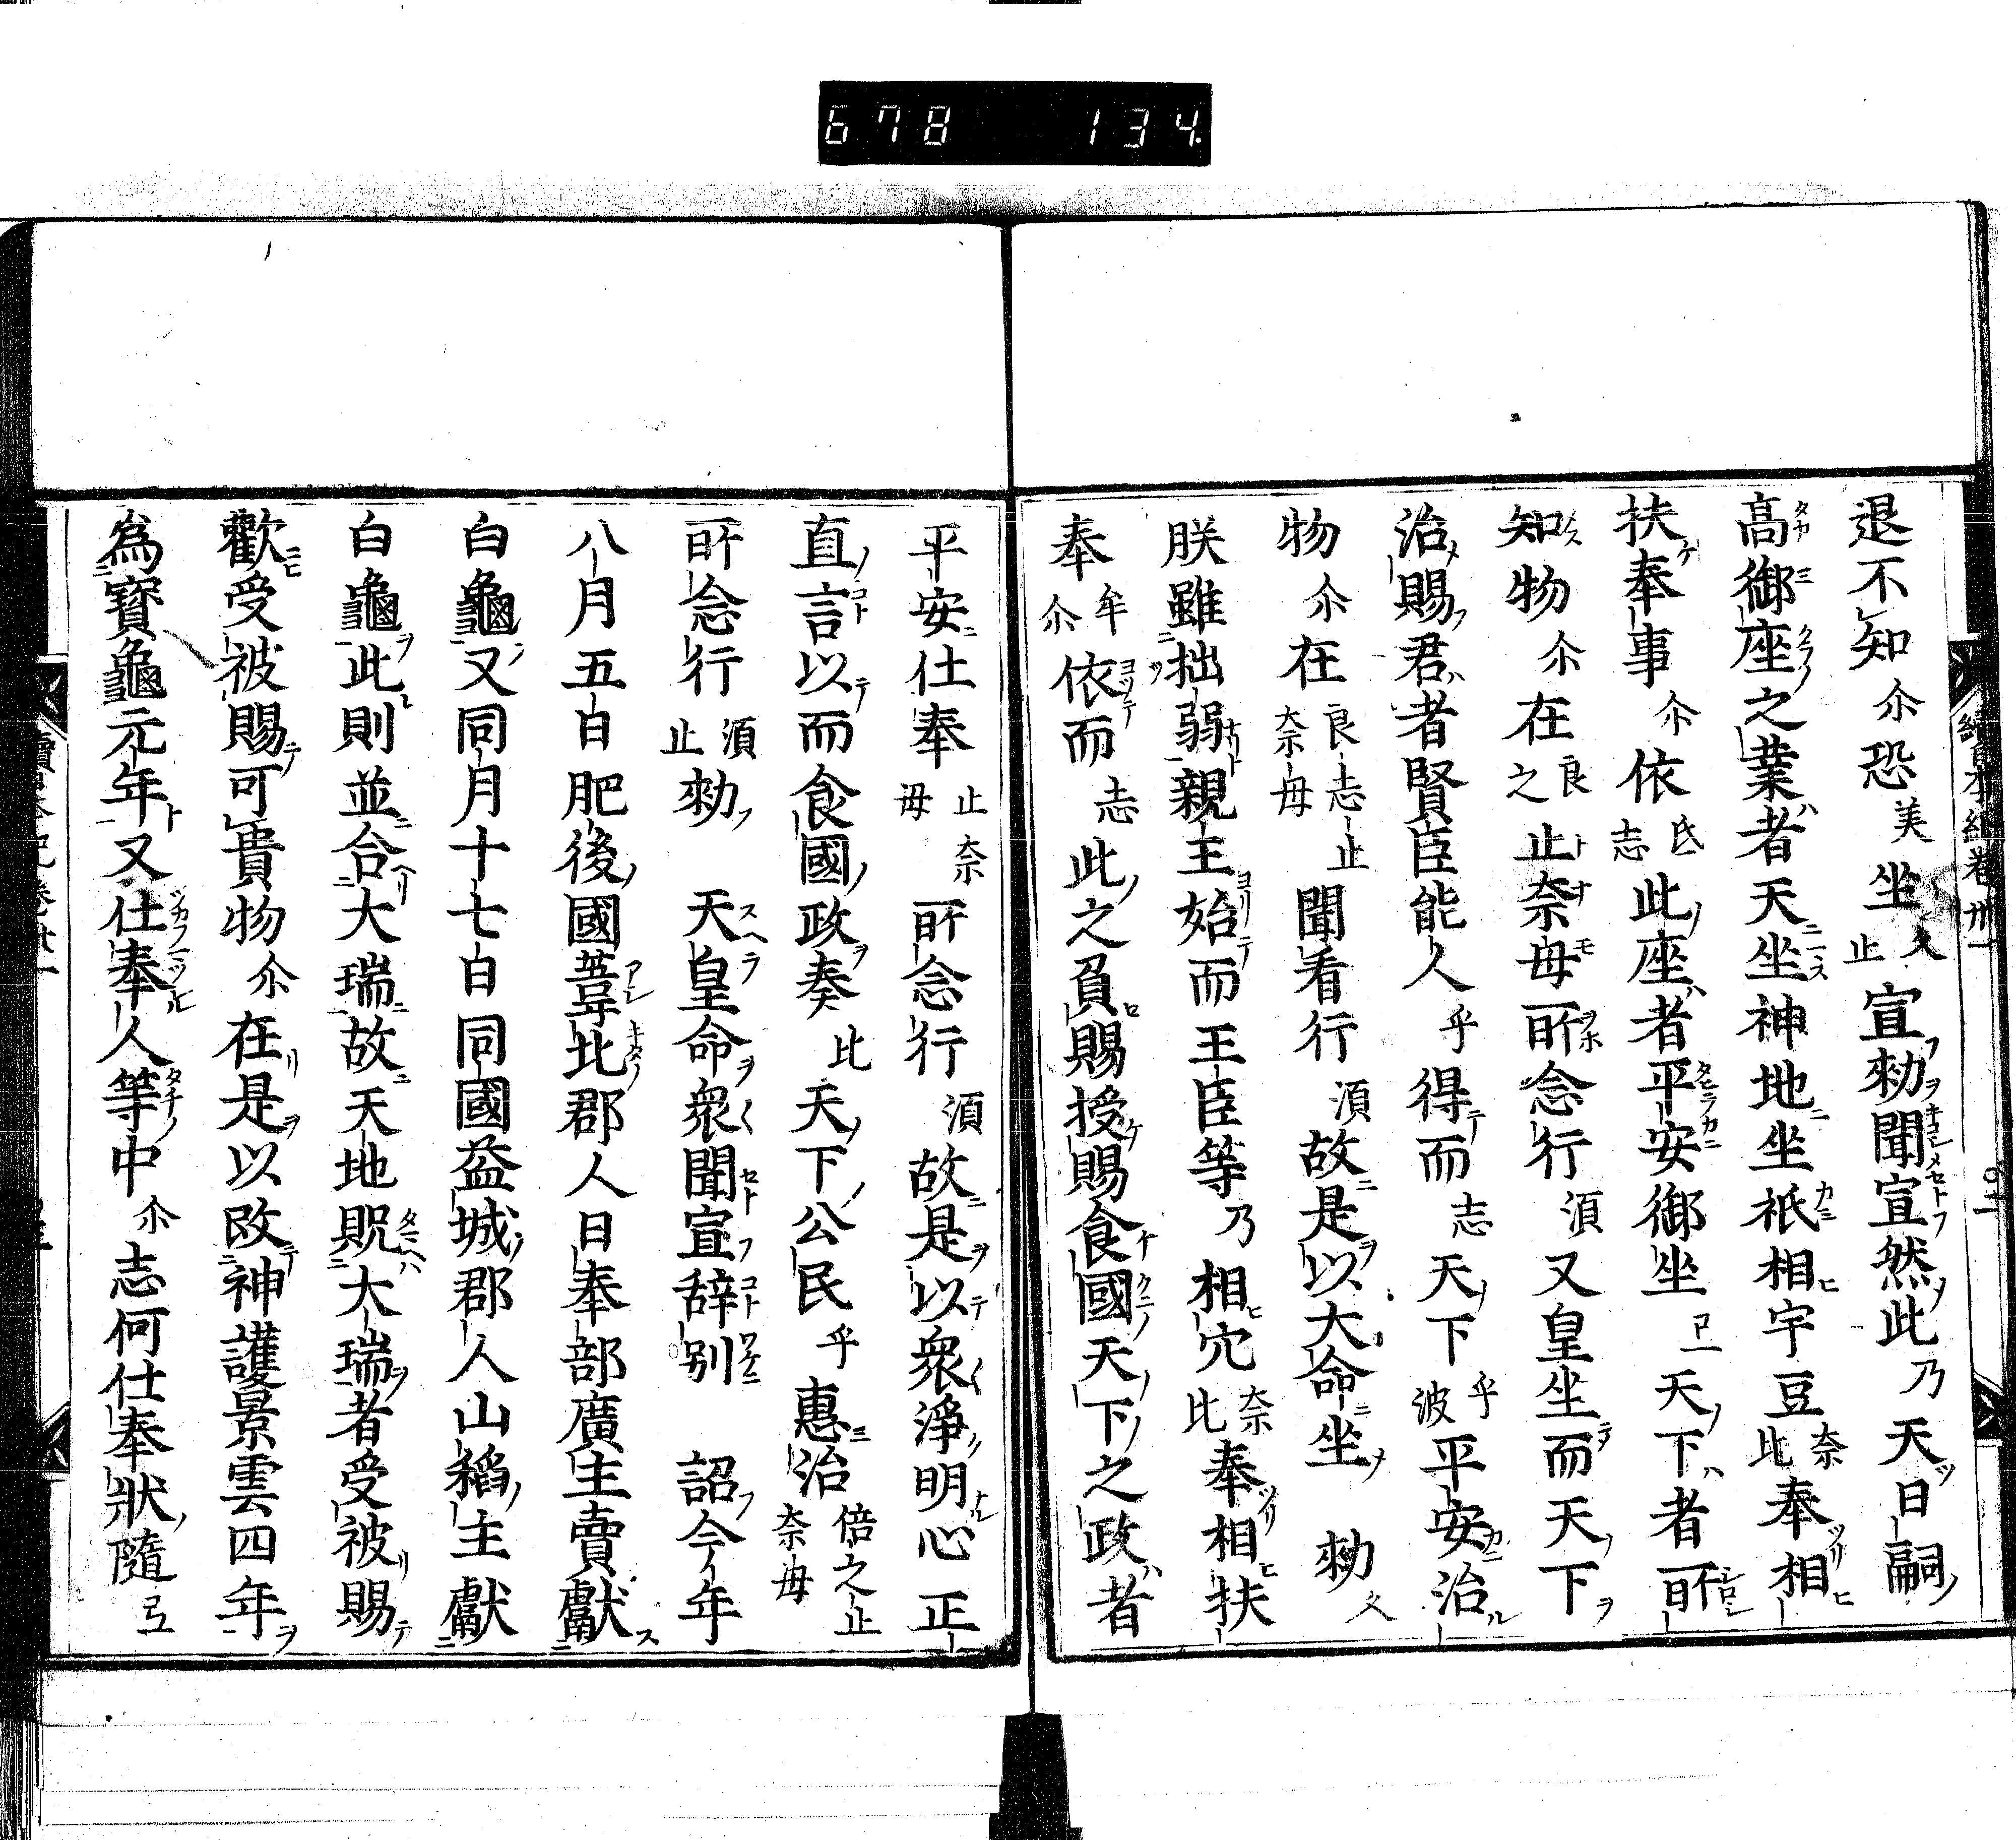 678 134.
退不知尒恐美坐久止宣勑聞宣然此乃天日嗣
高御座之業者天坐神地坐祇相宇豆奈比奉相
扶奉事尒依氐志此座者平安御坐天下者所
知物尒在良之止奈母所念行湏又皇坐而天下
治賜君者賢臣能人乎得而志天下乎波平安治
物尒在良志止奈母聞看行湏故是以大命坐勑久
朕雖拙弱親王始而王臣等乃相穴奈比奉相扶
奉牟尒依而志此之負賜授賜食國天下之政者
平安仕奉止奈毋所念行湏故是以衆淨明心正
直言以而食國政奏比天下公民乎惠治倍之止奈毋
所念行湏止勑天皇命衆聞宣辞別詔今年
八月五日肥後國葦北郡人日奉部廣主賣獻
白龜又同月十七日同國益城郡人山稻主獻
白龜此則並合大瑞故天地貺大瑞者受被賜
歡受被賜可貴物尒在是以改神護景雲四年
為寳龜元年又仕奉人等中尒志何仕奉狀隨弖